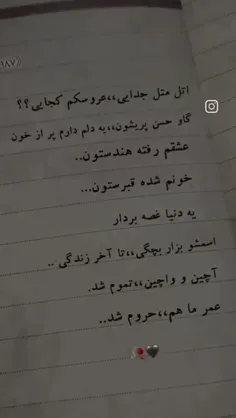 اتل متل جدایی،،عروسکم کجایی؟؟
گاو حسن پریشون،،یه دلم دارم پر از خون
عشقم رفته هندستون..
خونم شده قبرستون...
یه دنیا غصه بردار
اسمشو بزار بچگی،،تا آخر زندگی ..
آچین و واچین،،تموم شد.
عمر ما هم،،حروم شد..